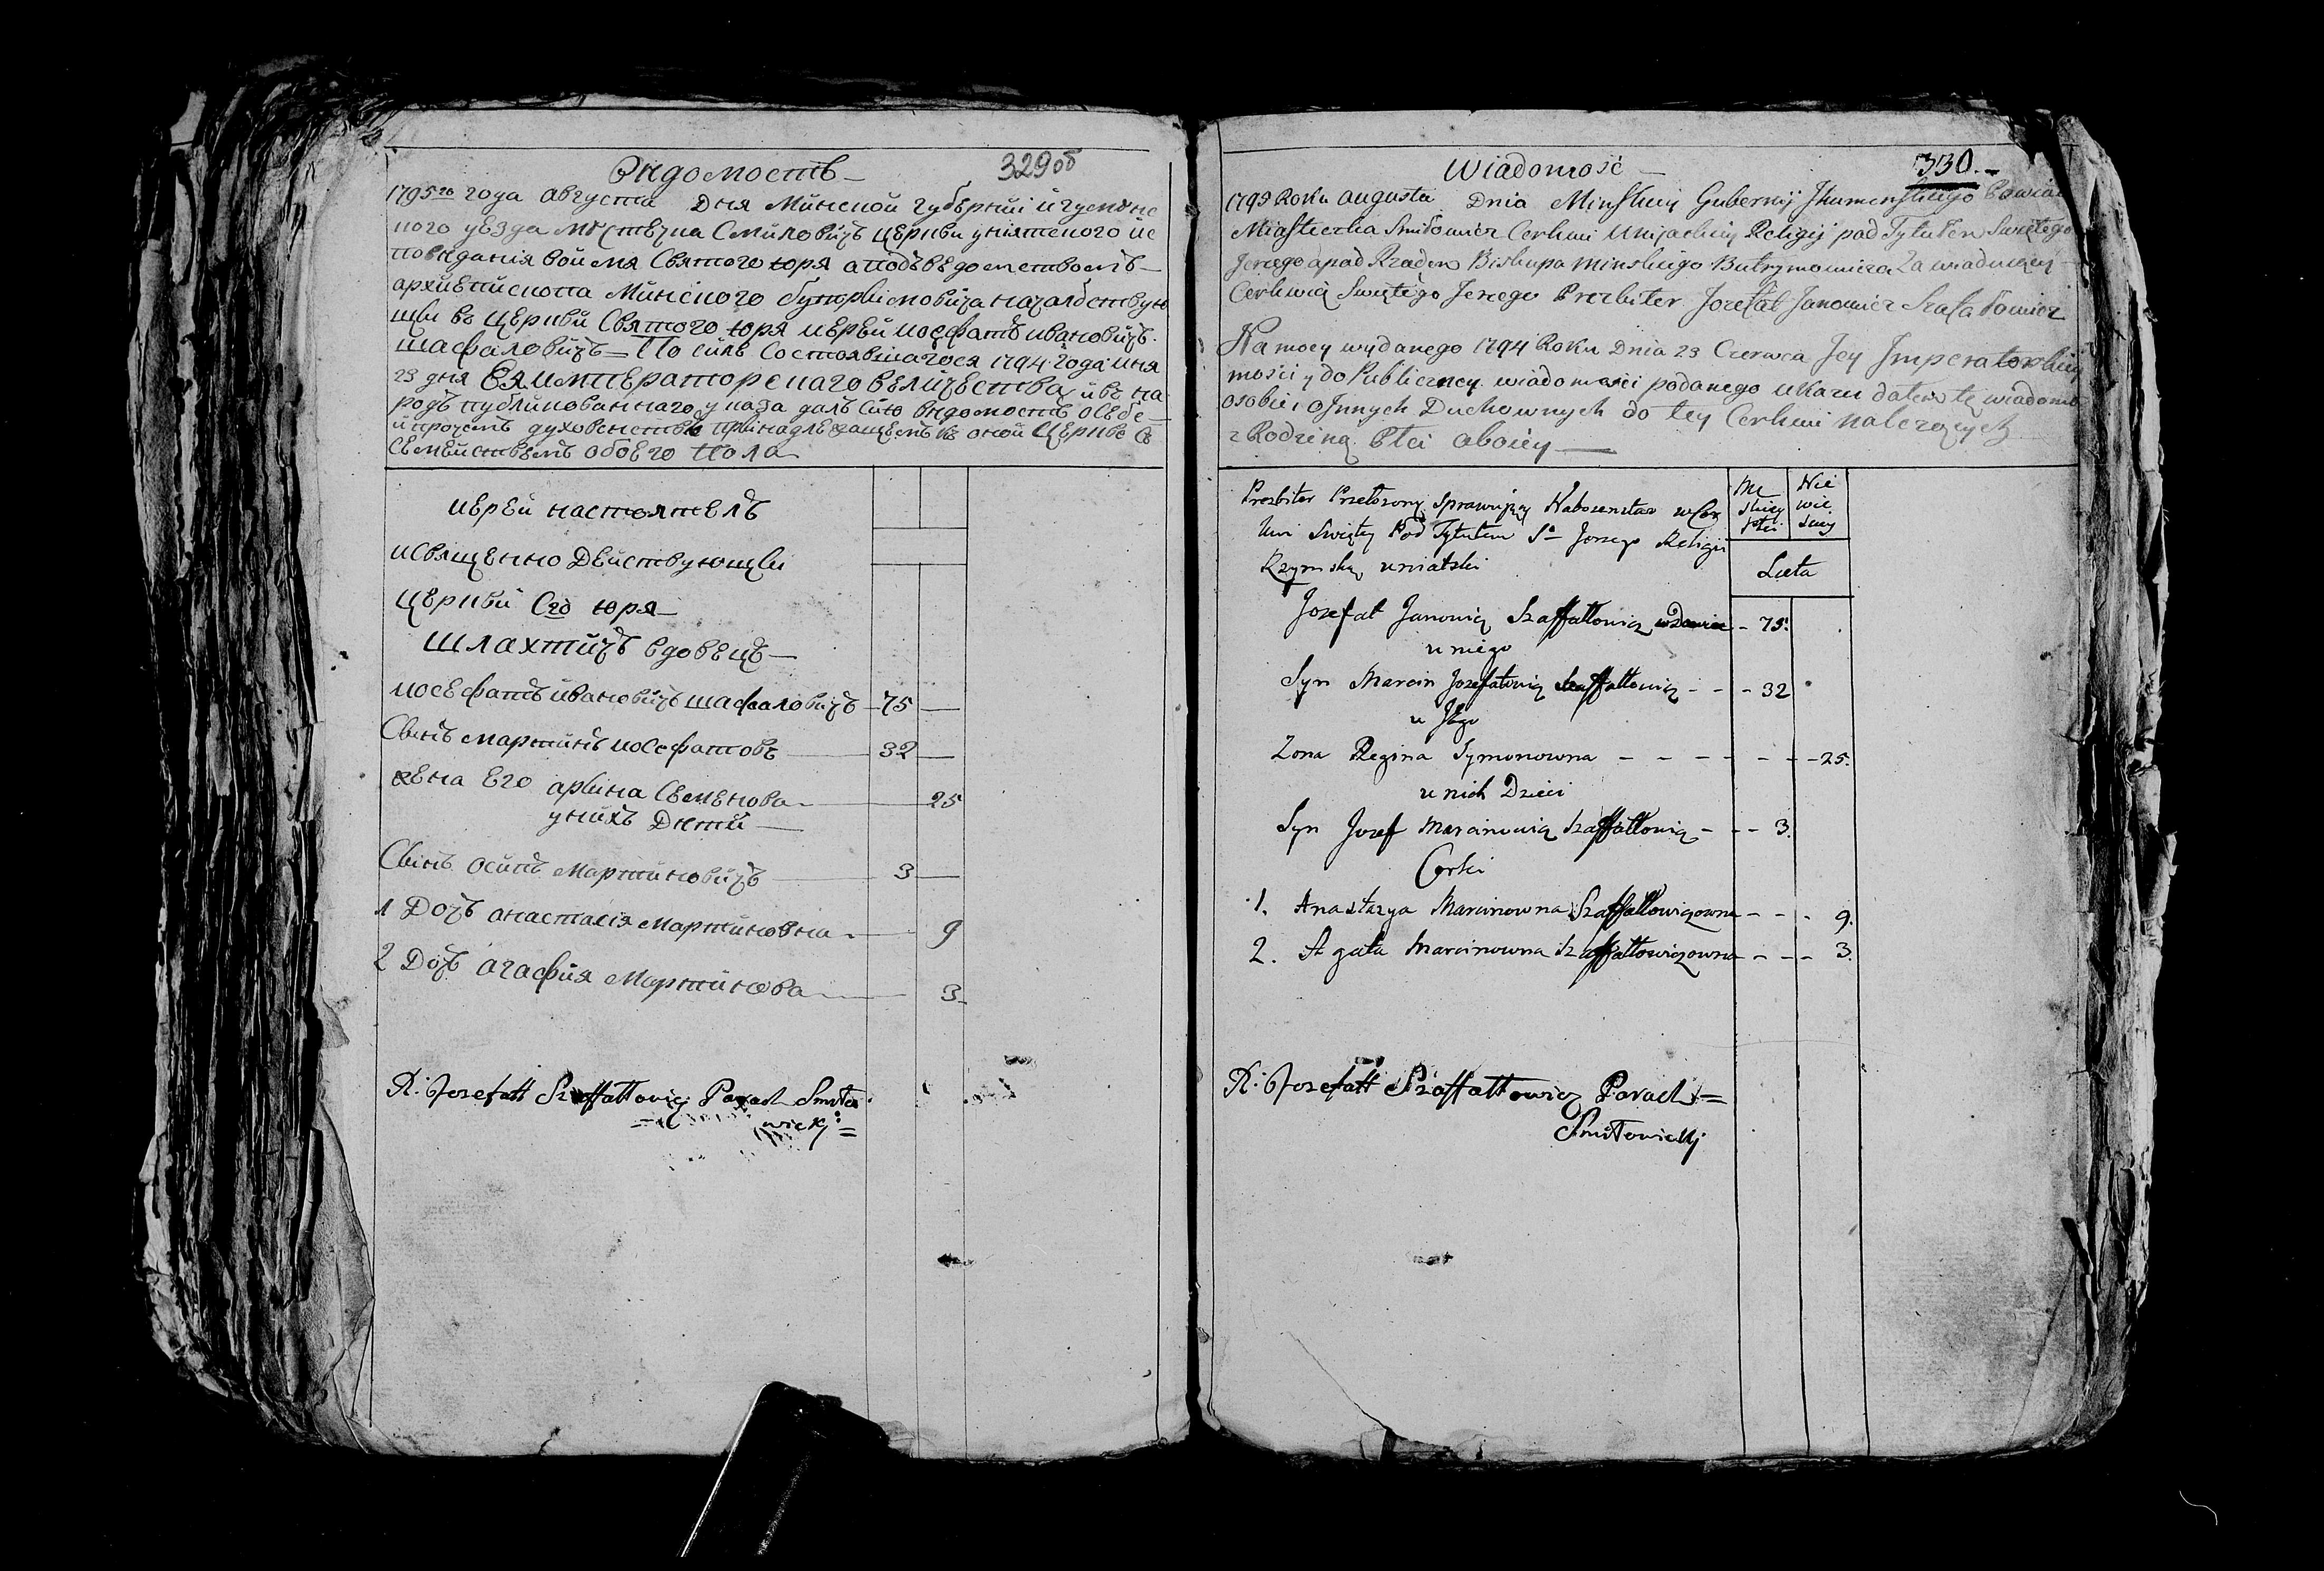 Вѣдомость
329 об
1795го года августа дня Минской губерніи игуменс
кого уезда местечка Смиловичъ церкви униятского ис
поведания во имя Святого юря а подъ ведомствомъ
архиепископа Минского бутрымовича началствую
щи въ церкви Святого юря иерей иосефатъ ивановичъ
шафаловичъ = По силе состоявшагося 1794 года июня
23 дня Ея императорскаго величества и въ на
родъ публикованнаго указа далъ сию ведомость о себе
и прочемъ духовенстве принадлежащемъ къ оной церкве съ
семействемъ обоего пола
иерей настоятель
и священно действующи
церкви Сго юря
шляхтичъ вдовецъ
иосефатъ ивановичъ шафаловичъ 75
Сынъ мартинъ иосефатовъ 32
жена его арына Семенова 25
у нихъ дети
Сынъ осипъ Мартиновичъ 3
1 Дочъ анастасія Мартиновна 9
2 Дочъ агафия Мартинова 3
X: Jozefatt Szaffałłowicz Paroch Smiło
wicki =
Wiadomość
330.
1795 Roku augusta Dnia Minskiey Gubernij Ihumenskiego Powiat
Miasteczka Smiłowicz Cerkwi Unijackiey Religij pod Tytułem Swiętego
Jerzego a pod Rządem Biskupa Minskiego Butrymowicza Zawiaduiący
Cerkwią Swiętego Jerzego Prezbiter Jozefat Janowicz Szafałowicz
Na mocy wydanego 1794 Roku Dnia 23 Czerwca Jey Imperatorskiey
mości y do Publiczney wiadomości podanego ukazu dałem tę wiadomo
o sobie i o Innych Duchownych do tey Cerkwi należących
z Rodziną Płci oboiey
Prezbiter Przełożony sprawuiący Nabożenstwo w Cer
kwi Swiętey Pod Tytułem S° Jerzego Religii
Rzymskiey uniatski
Mę
skiey
płci
Nie
wie
sciey
Lata
Jozefat Janowicz Szaffałłowicz wdowiec - 75.
u niego
Syn Marcin Jozefatowicz Szaffałłowicz - - - 32
u Jego
Zona Regina Symonowna - - - - - - 25.
u nich Dzieci
Syn Jozef Marcinowicz Szaffałłowicz - - - 3.
Corki
1. Anastazya Marcinowna Szaffałłowiczowna - - - 9.
2. Agata Marcinowna Szaffałłowiczowna - - - 3.
X: Jozefatt Szaffałłowicz Paroch =
Smiłowicki